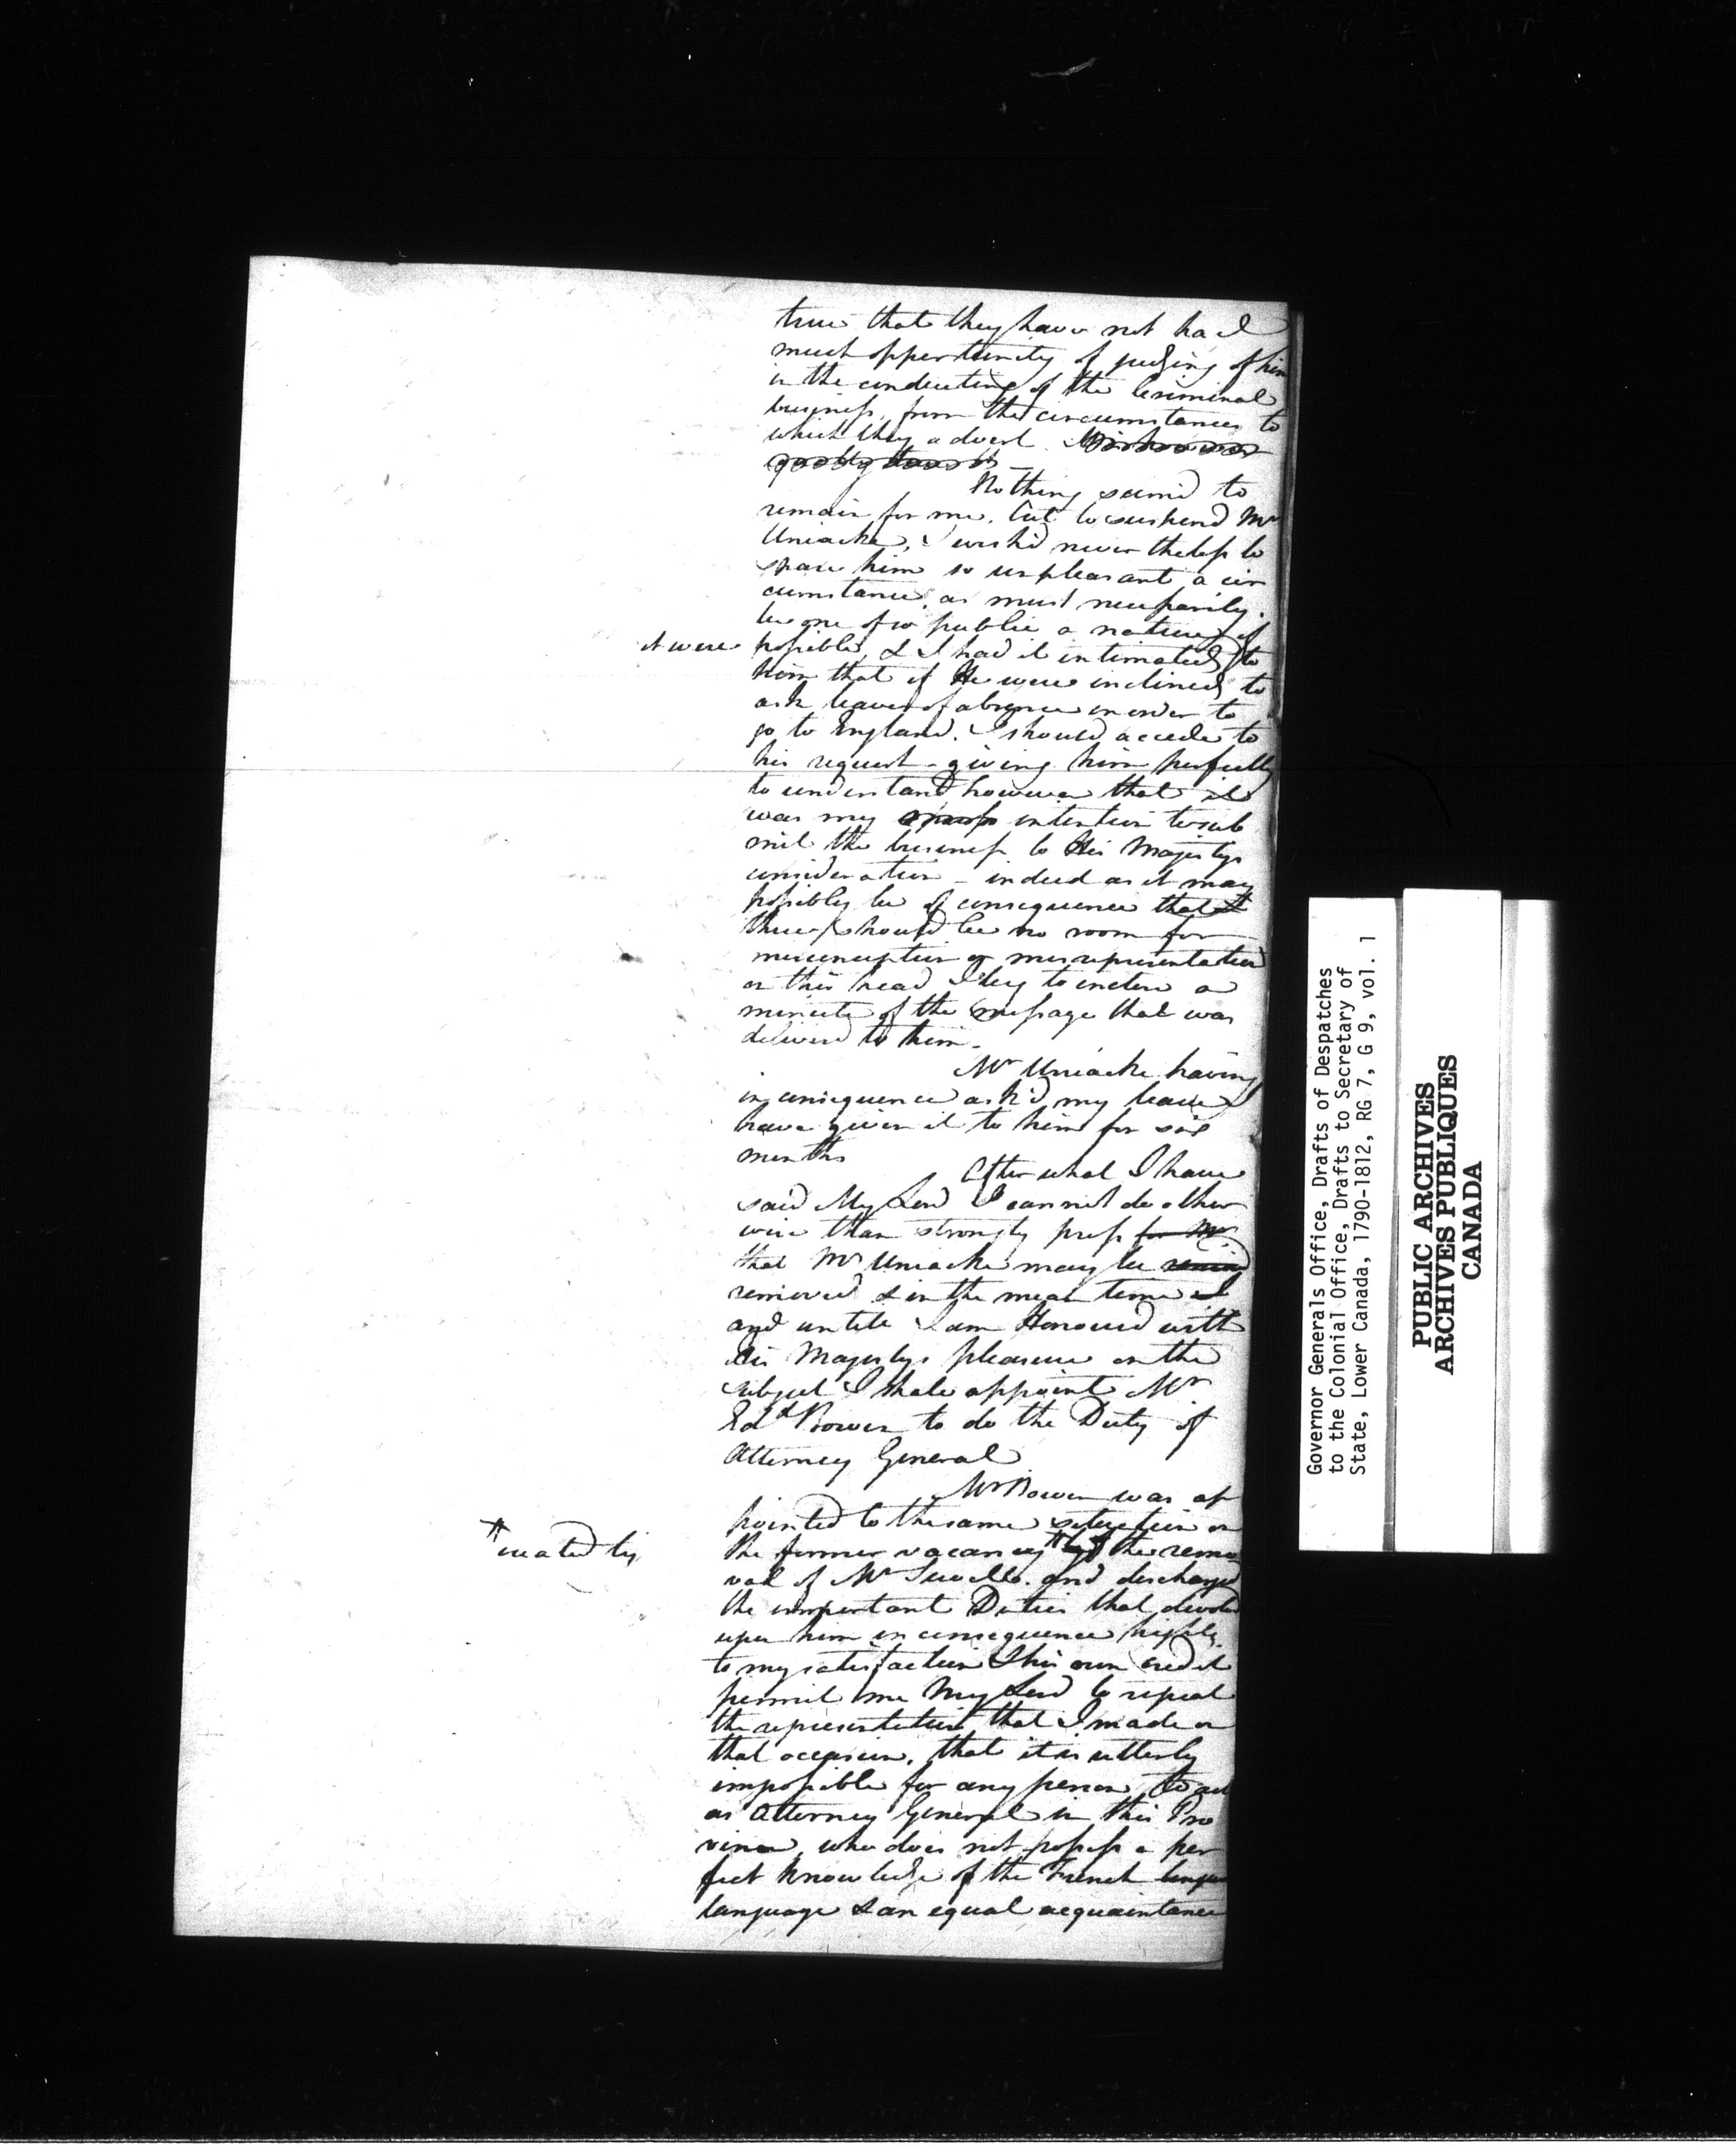 true that they have not had
much opportunity of judging of him
in the conducting of the Criminal
business, from the circumstances to
which they advert.
Nothing seem'd to
remain for me, but to suspend Mr
Uniacke, I wish'd never theless to
spare him so unpleasant a cir
cumstance, as must necessarily
be one of so public a nature, if
it were possible, & I had it intimated to
him that if He were inclined to
ask leave of absence in order to
go to England. I should accede to
his request - giving him perfectly
to understand however that it
was my intention to sub
mit the business to His Majestys
consideration - indeed as it may
possibly be of consequence that
there should be no room for
misconception or misrepresentation
on this head I beg to enclose a
minute of the message that was
deliver'd to him.
Mr Uniacke having
in consequence ask'd my leave I
have given it to him for six
months
After what I have
said My Lord I cannot do other
wise than strongly press for Mr
that Mr Uniacke may be
removed & in the mean time I
and until I am Honoured with
His Majestys pleasure on the
subject I shall appoint Mr
Edd Bowen to do the Duty of
Attorney General
Mr Bowen was ap
pointed to the same situation on
the former vacancy # by the remo
# created by
val of Mr Sewell. and discharged
the important Duties that devolved
upon him in consequence highly
to my satisfaction & his own credit
permit me My Lord to repeat
the representation that I made on
that occasion, that it is utterly
impossible for any person to act
as Attorney General in this Pro
vince, who does not possess a per
fect knowledge of the French
language & an equal acquaintance
Governor Generals Office, Drafts of Despatches
to the Colonial Office, Drafts to Secretary of
State, Lower Canada, 1790-1812, RG 7, G 9, vol. 1
PUBLIC ARCHIVES
ARCHIVES PUBLIQUES
CANADA